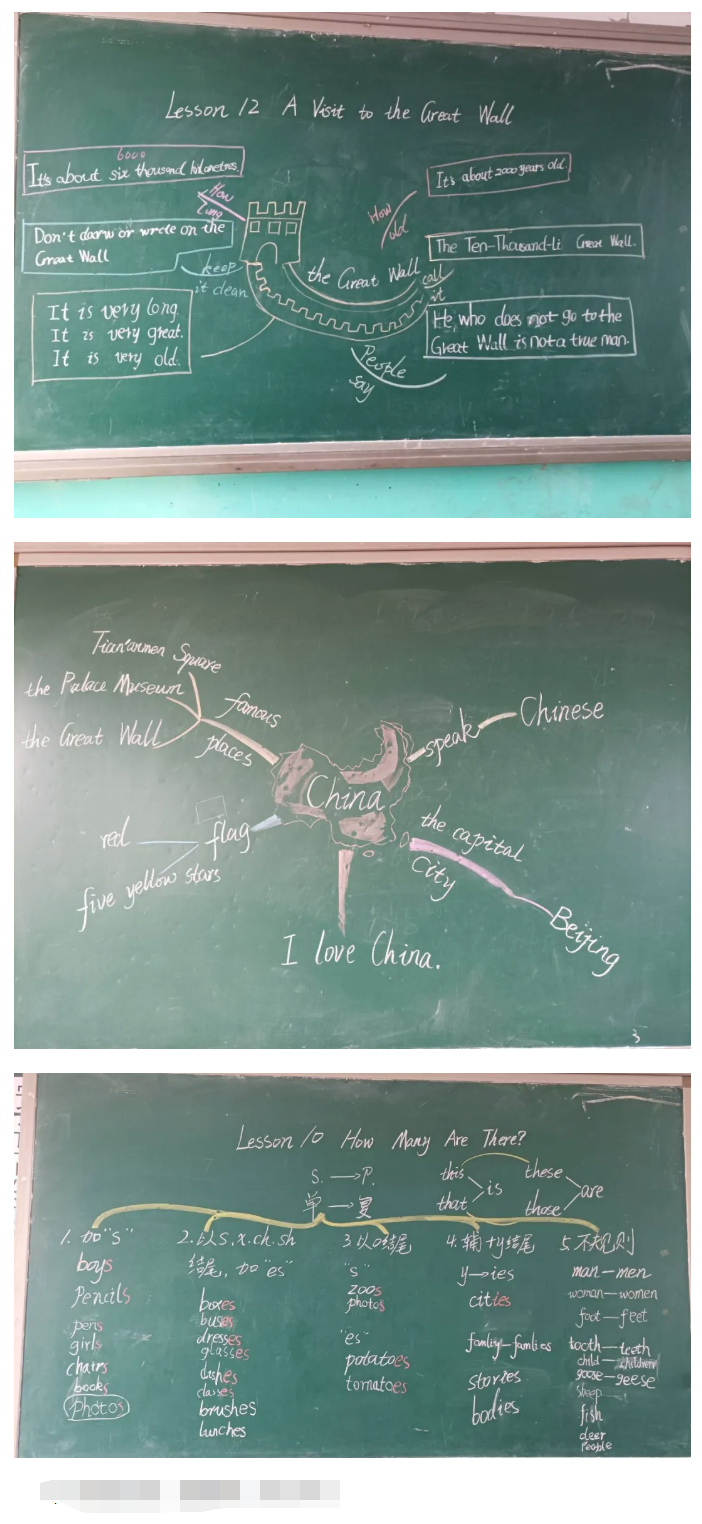 Lesson 12 A Visit to the Great Wall
6000
It's about six thousand kilometres.
How
long
Don't daorw or wrete on the
Great Wall
keep
it clean
It is very long.
It is very great.
It is very old.
the Great Wall
How
old
It's about 2000 years old.
call
it
The Ten-Thousand-Li Great Wall.
People
say
He who does not go to the
Great Wall is not a true man.
Tian'anmen Square
the Palace Museum
the Great Wall
famous
places
China
speak
Chinese
red
five yellow stars
flag
the capital
City
Beijing
I love China.
3
Lesson 10 How Many Are There?
S. → P.
单 → 复
this
that
is
these
those
are
1. 加"s"
boys
Pencils
pens
girls
chairs
books
Photos
2. 以s.x.ch.sh
结尾，加"es"
boxes
buses
dresses
glasses
classes
brushes
lunches
3. 以o结尾
"s"
zoos
photos
"es"
potatoes
tomatoes
4. 辅+y结尾
y→ies
cities
stories
bodies
5. 不规则
man—men
woman—women
foot—feet
tooth—teeth
child—children
goose—geese
sheep
fish
deer
People